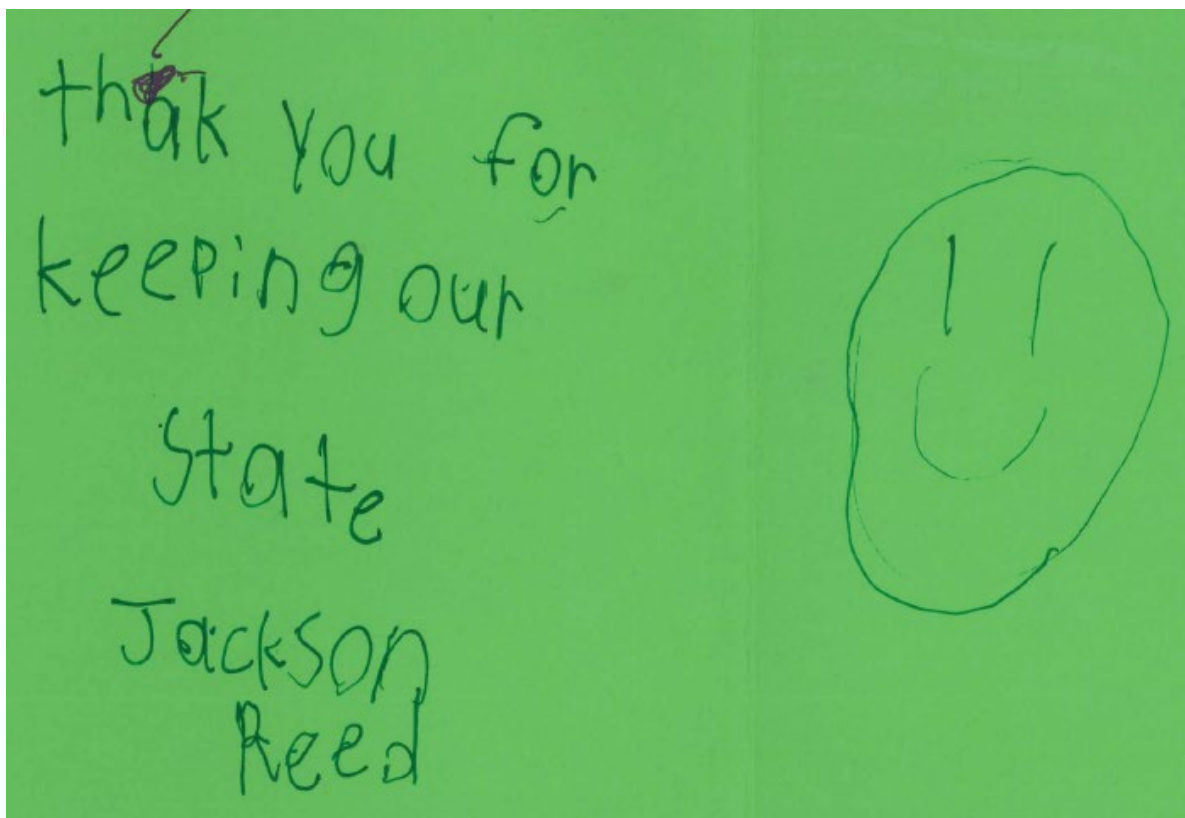 thak you for
keeping our
State
Jackson
Reed